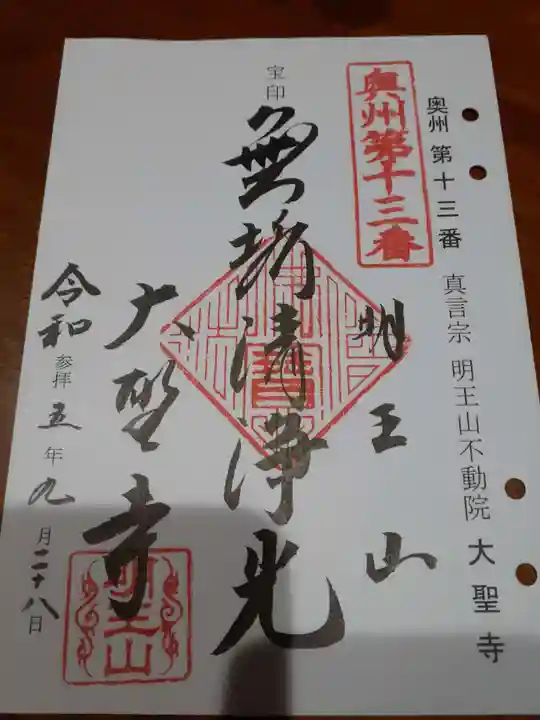 奥州 第十三番 真言宗 明王山不動院 大聖寺
奥州第十三番
明王山
宝印
無垢清浄光
大聖寺
令和 参拝 五年九月二十八日